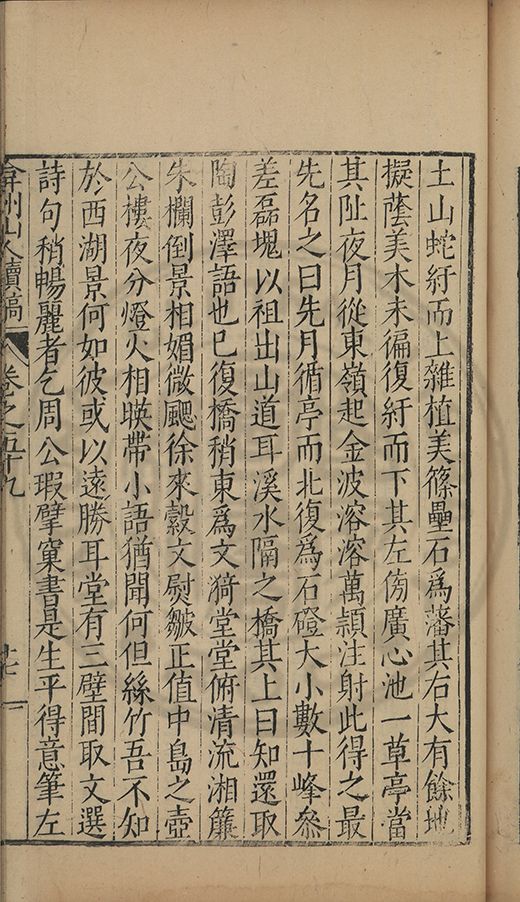 土山蛇紆而上雜植美篠壘石為藩其右大有餘地
擬蔭美木未徧復紆而下其左傍廣心池一草亭當
其阯夜月從東嶺起金波溶溶萬頴注射此得之最
先名之曰先月循亭而北復為石磴大小數十峰叅
差磊塊以祖出山道耳溪水隔之橋其上曰知還取
陶彭澤語也已復橋稍東為文漪堂堂俯清流湘簾
朱欄倒景相媚微颸徐來縠文熨皺正值中島之壺
公樓夜分燈火相暎帶小語猶聞何但絲竹吾不知
於西湖景何如彼或以遠勝耳堂有三壁間取文選
詩句稍暢麗者乞周公瑕擘窠書是生平得意筆左
弇州山人續稿 卷之五十九